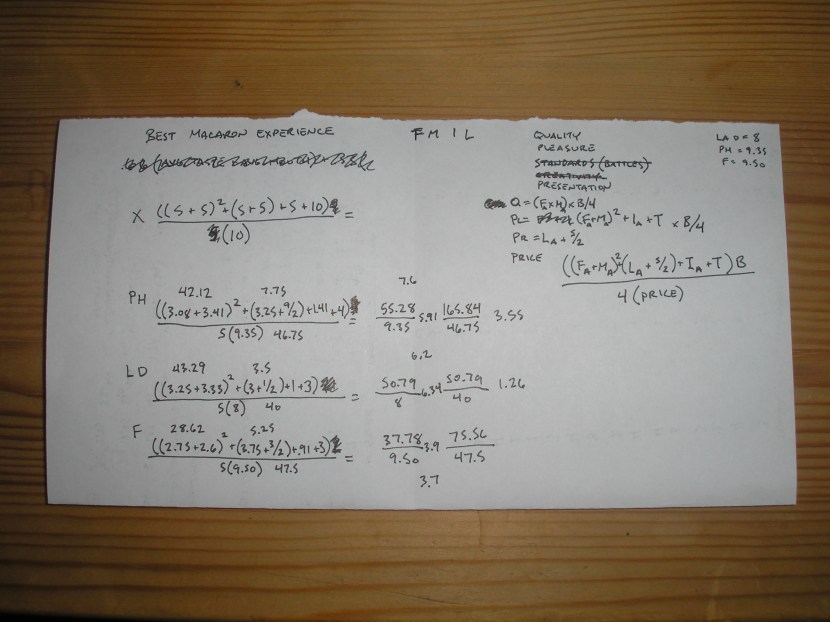 BEST MACARON EXPERIENCE
FMIL
QUALITY
PLEASURE
STANDARDS (BATTLES)
CREATIVITY
PRESENTATION
LAD = 8
PH = 9.35
F = 9.50
Q = (FA×MA)×B/4
PL = (FA+MA)² + IA + T × B/4
PR = LA + S/2
PRICE ((FA+MA)²+(LA + S/2)+IA+T)B
4 (PRICE)
X ((5+5)²+(5+5)+5+10) =
(10)
42.12 7.75 7.6
PH ((3.08+3.41)²+(3.25+9/2)+1.41+4) = 55.28 5.91 165.84 3.55
5(9.35) 46.75 9.35 46.75
6.2
LD 43.29 3.5
((3.25+3.33)²+(3+1/2)+1+3) = 50.79 6.34 50.79 1.26
5(8) 40 8 40
F 28.62 5.25
((2.75+2.6)²+(3.75+3/2)+.91+3) = 37.78 3.9 75.56
5(9.50) 47.5 9.50 47.5
3.7